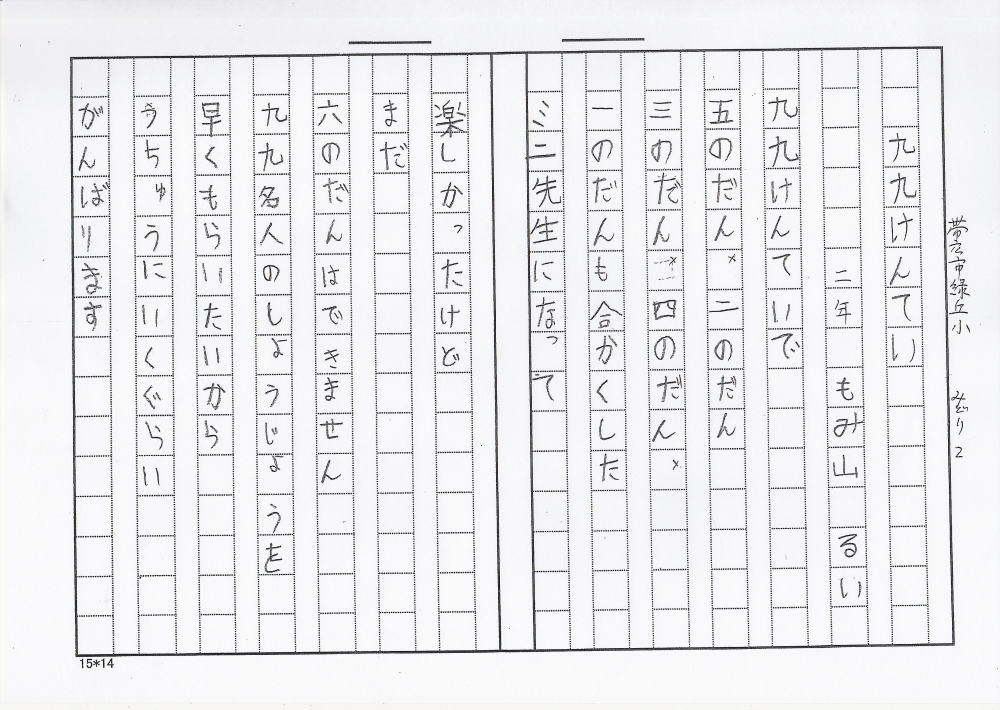 帯広市緑丘小 みどり2
九九けんてい
二年 もみ山 るい
九九けんていで
五のだん 二のだん
三のだん 四のだん
一のだんも合かくした
ミニ先生になって
楽しかったけど
まだ
六のだんはできません
九九名人のしょうじょうを
早くもらいたいから
うちゅうにいくぐらい
がんばります
15*14